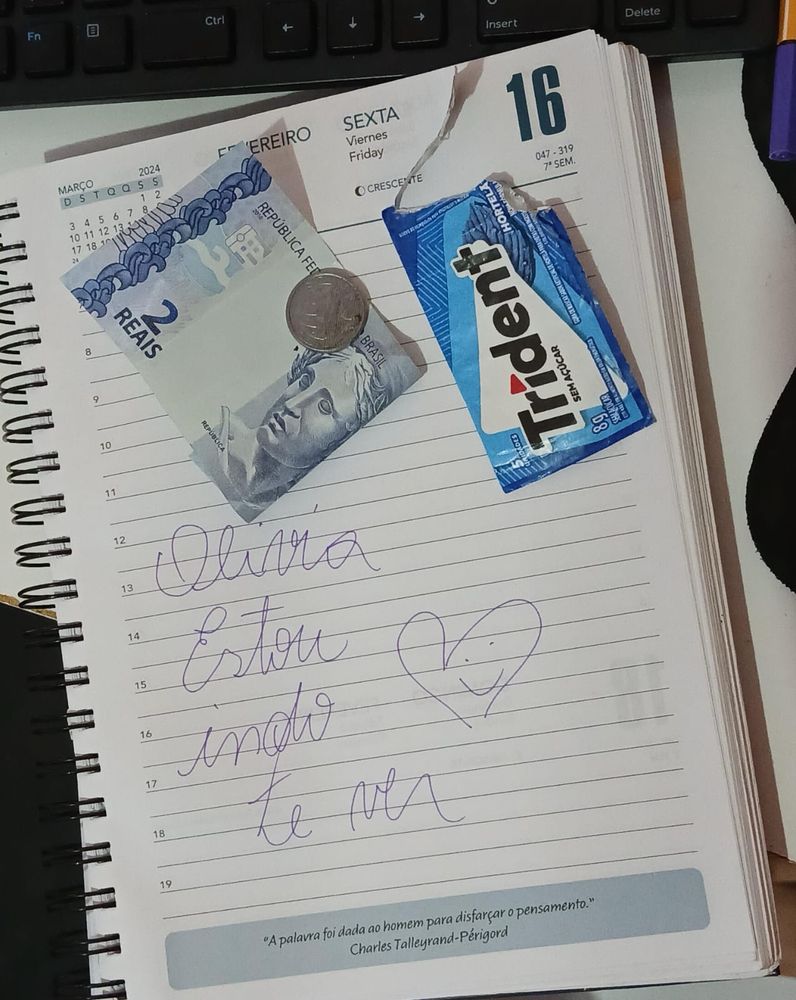 Fn
Ctrl
Insert
Delete
MARÇO 2024
D S T Q Q S S
1 2
3 4 5 6 7 8 9
10 11 12 13
17 18
24
FEVEREIRO
SEXTA
Viernes
Friday
CRESCENTE
16
047 - 319
7ª SEM.
REPÚBLICA FE
BRASIL
2
REAIS
REPÚBLICA
HORTELÃ
Trident
SEM AÇÚCAR
5 UNIDADES
8g
8
9
10
11
12
13
14
15
16
17
18
19
Olivia
Estou
indo
te ver
"A palavra foi dada ao homem para disfarçar o pensamento."
Charles Talleyrand-Périgord